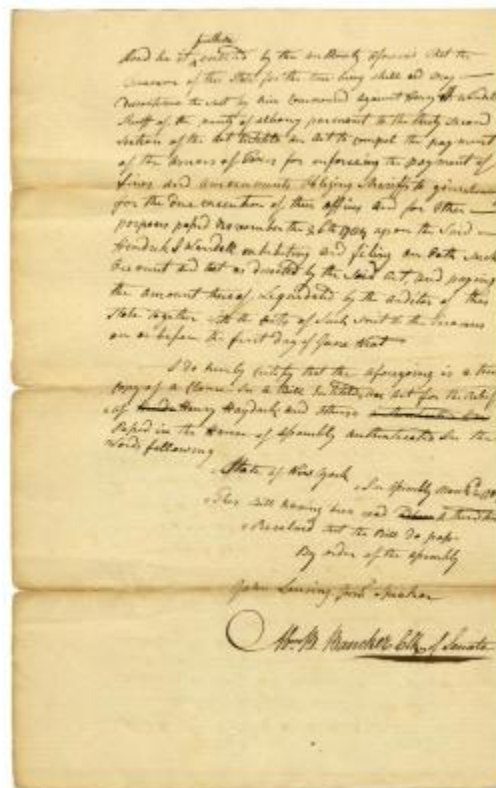 further
And be it enacted by the authority aforesaid that the
of this State for the time being shall and may
the suit by him commenced against Henry Wendell
Sheriff of the County of Albany pursuant to the thirty second
section of the Act an Act to compel the payment
of the Arrears of Taxes for enforcing the payment of
fines and amercements Obliging Sheriffs to give
for the due execution of their offices and for Other
purposes passed November the 26th upon the said
Hendrick I Wendell exhibiting and filing on Oath such
Account and as directed by the said Act, and paying
the amount thereof Liquidated by the auditor of this
State together with the Costs of Such suit to the
on or before the first day of June next
I do hereby certify that the aforegoing is a true
copy of a Clause in a Bill Entitled an Act for the relief
of Henry Haydock and others
Passed in the House of Assembly Authenticated in the
words following
State of New York
In Assembly
This Bill having been read a third
Resolved that the Bill do pass
By order of the Assembly
John Lansing Junr Speaker
Abm B. Bancker Clk of Senate